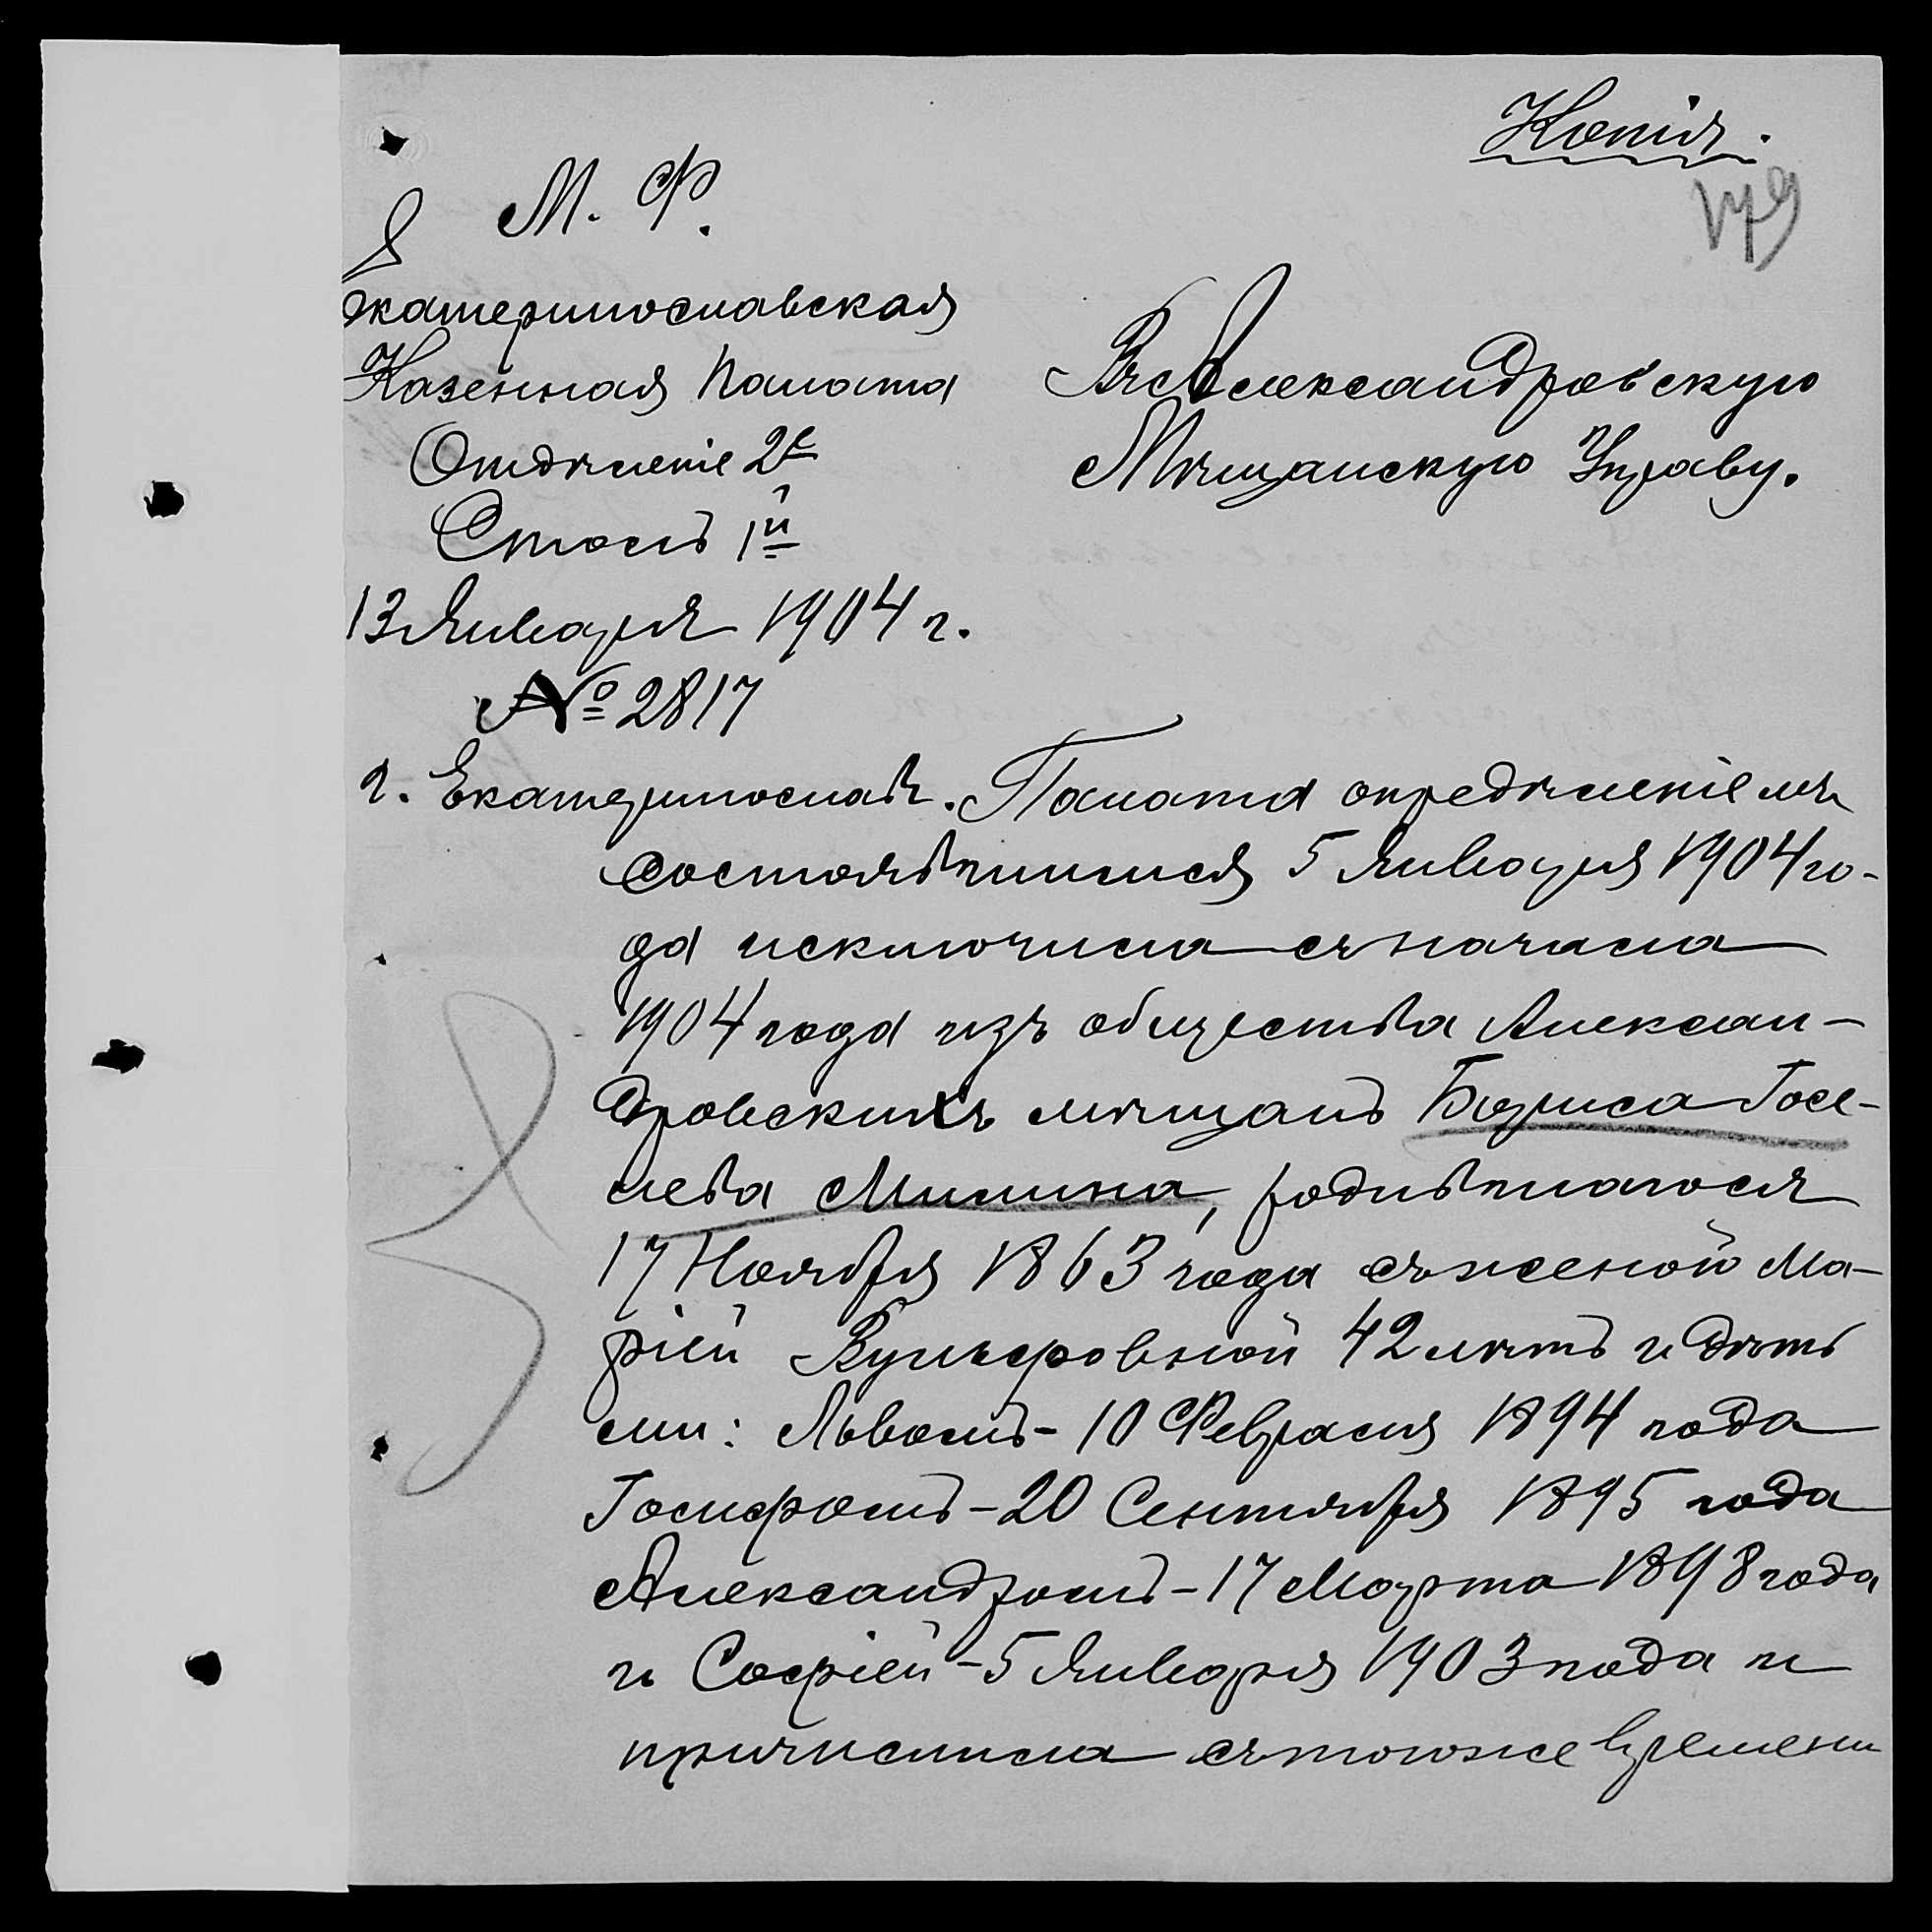 Копія.
М. Ф.
Екатеринославская
Казенная Палата
Отдѣленіе 2е
Столъ 1й
13 Января 1904 г.
№ 2817
г. Екатеринославъ.
Въ Александровскую
Мѣщанскую Управу.
Палата опредѣленіемъ
состоявшимся 5 Января 1904 го-
да исключила съ начала
1904 года изъ общества Алексан-
дровскихъ мѣщанъ Бориса Іосе-
лева Милина, родившагося
17 Ноября 1863 года съ женой Ма-
ріей Вульфовной 42 лѣтъ и дѣть
ми: Львомъ - 10 Февраля 1894 года
Іосифомъ - 20 Сентября 1895 года
Александромъ - 17 Марта 1898 года
и Софіей - 5 Января 1903 года и
причислила съ того же времени